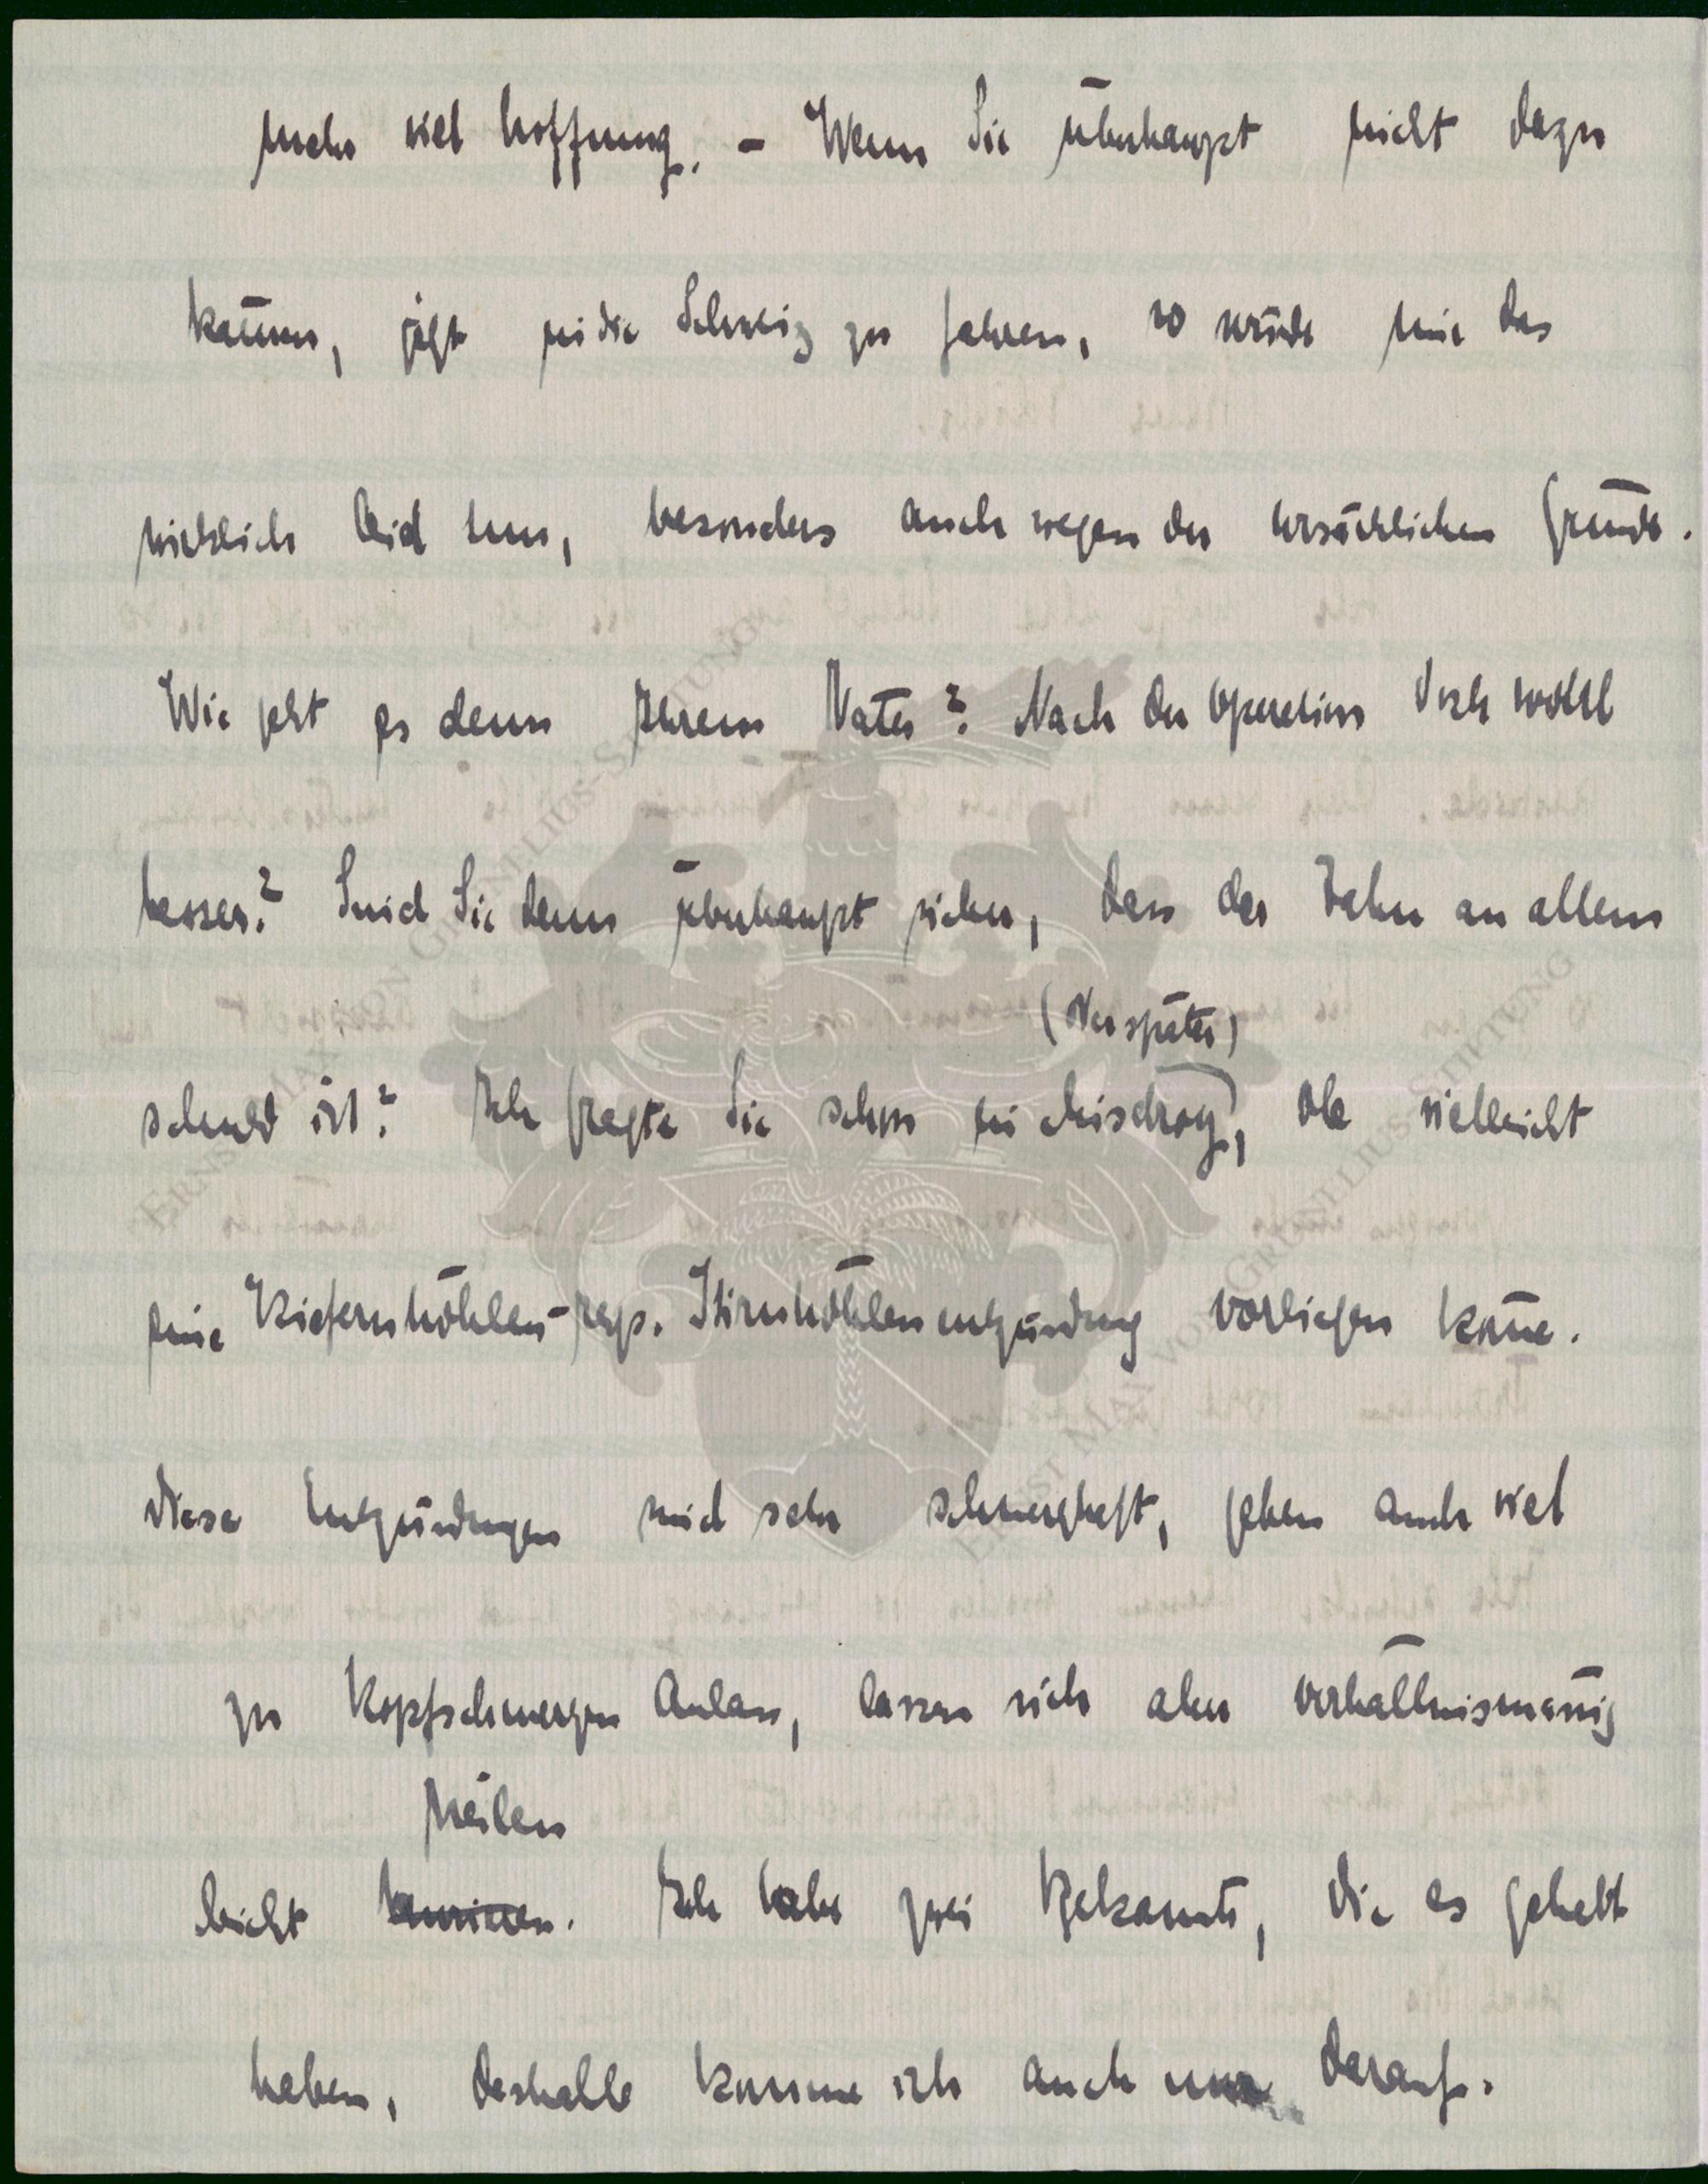 mehr viel Hoffnung. – Wenn Sie überhaupt nicht dazu
kämen, jetzt in die Schweiz zu fahren, so würde mir das
wirklich leid tun, besonders auch wegen der ursächlichen Gründe.
Wie geht es denn Ihrem Vater? Nach der Operation doch wohl
besser? Sind Sie denn überhaupt sicher, dass der Zahn an allem
(Neuspeter)
schuld ist? Ich fragte Sie schon in Misdroy, ob vielleicht
eine Kiefernhöhlen- resp. Stirnhöhlenentzündung vorliegen könne.
Diese Entzündungen sind sehr schmerzhaft, geben auch viel
zu Kopfschmerzen Anlass, lassen sich aber verhältnismässig
heilen
leicht . Ich habe zwei Bekannte, die es gehabt
haben, deshalb komme ich auch nur darauf.
ERNST MAX VON GRUNELIUS-STIFTUNG
ERNST MAX VON GRUNELIUS-STIFTUNG